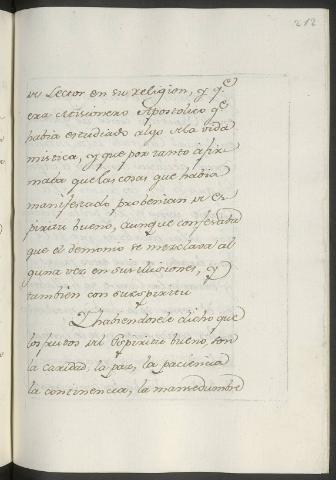 212
de Lector en su religion, y qe
era Missionero Apostolico qe
habia estudiado algo de la vida
mistica, y que por tanto afir
maba que las cosas que habia
manifestado probenian de es
piritu bueno, aunque confesaba
que el demonio se mezclava al
guna vez en sus ilusiones, y
tambien con su espiritu
Y habiendosele dicho que
los frutos del Espiritu bueno, son
la caridad, la paz, la paciencia
la continencia, la mansedumbre